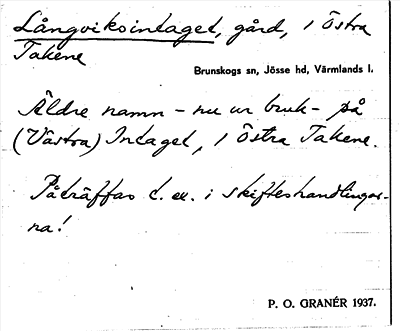 Långviksintaget, gård, i Östra
Takene
Brunskogs sn, Jösse hd, Värmlands l.
Äldre namn – nu ur bruk – på
(Västra) Intaget, i Östra Takene.
Påträffas t. ex. i skifteshandlingar-
na!
P. O. GRANÉR 1937.